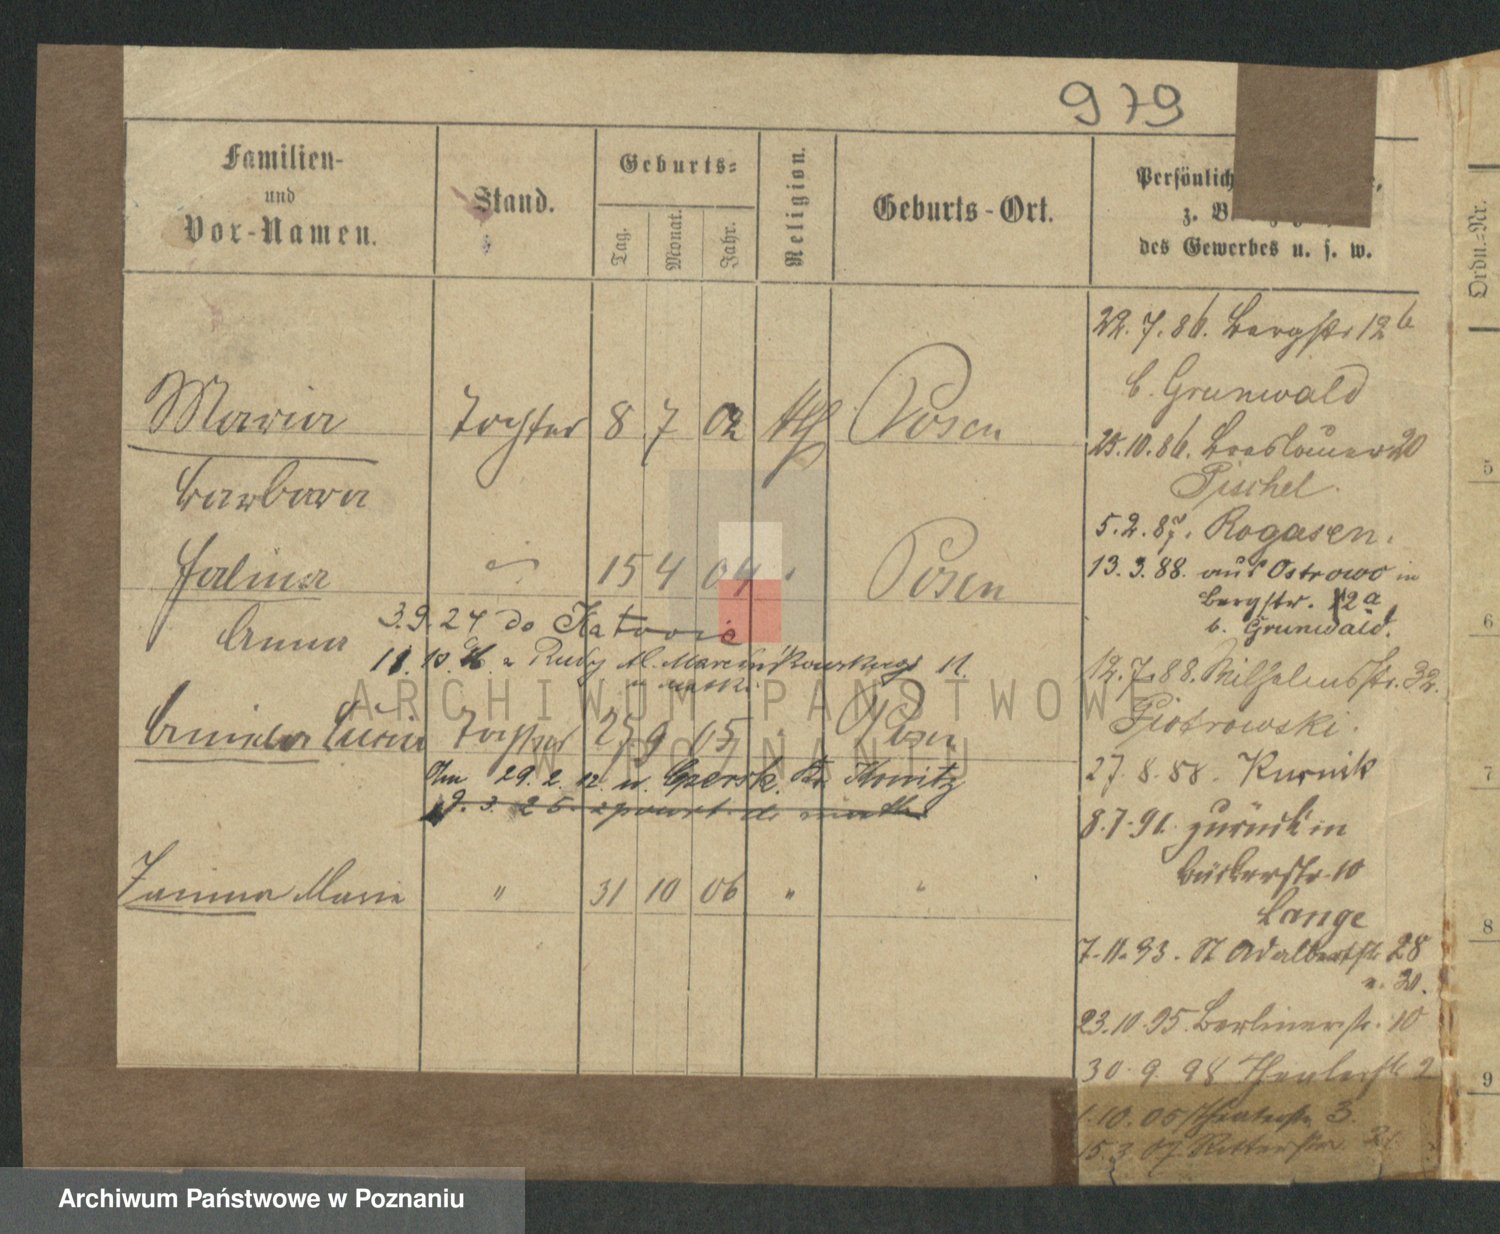 979
Familien-
und
Vor-Namen.
Stand.
Geburts-
Tag.
Monat.
Jahr.
Religion.
Geburts-Ort.
Persönlich
z. B.
des Gewerbes u. s. w.
Ordn.-Nr.
Maria Tochter 8 7 02 kth Posen
Barbara
Halina 15 4 04 Posen
Anna
3.9.24 do Katowic
Lucia Tochter 9 05 " Posen
29.2.12. n. Czersk. Kr. Konitz
Janina Maria " 31 10 06 " "
22.7.86. Bergstr. 12b
b. Grunwald
25.10.86. Breslauer 20
Pischel.
5.2.87. Rogasen.
13.3.88. aus Ostrowo in
Bergstr. 12a
b. Grunwald.
12.7.88. Wilhelmsstr. 32.
Piotrowski.
27.8.88. Kurnik
8.7.91. zurück in
Büttelstr. 10
Lange
7.11.93. St Adalbertstr 28
u. 30.
23.10.95. Berlinerstr. 10
30.9.98 Theaterstr 2
1.10.05 Theaterstr. 3.
15.3.07 Ritterstr.
5
6
7
8
9
ARCHIWUM PAŃSTWOWE
W POZNANIU
Archiwum Państwowe w Poznaniu